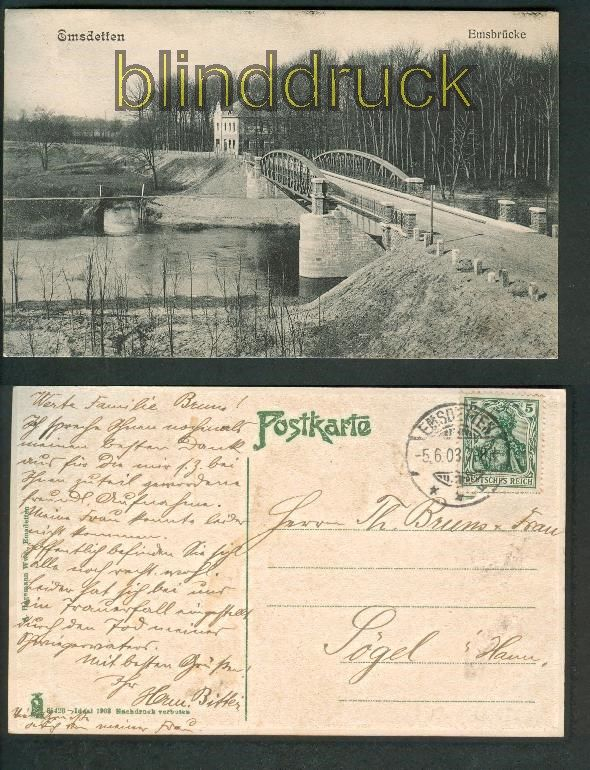 Emsdetten
Emsbrücke
blinddruck
Werte Familie Bruns!
Ich spreche Ihnen nochmals
meinen besten Dank
aus für die mir z. Z. bei
Ihnen zuteil gewordene
freundl. Aufnahme.
Meine Frau konnte leider
nicht kommen.
Hoffentlich befinden Sie sich
alle noch recht wohl.
Leider hat sich bei uns
ein Trauerfall eingestellt
durch den Tod meines
Schwiegervaters.
Mit besten Grüßen
Ihr
Herm. Bitter
meiner Frau
Postkarte
EMSDETTEN
-5.6.03
5
DEUTSCHES REICH
Herrn Th. Bruns u. Frau
Sögel i/Hann.
Wwe. Emsdetten
Ideal 1908 Nachdruck verboten